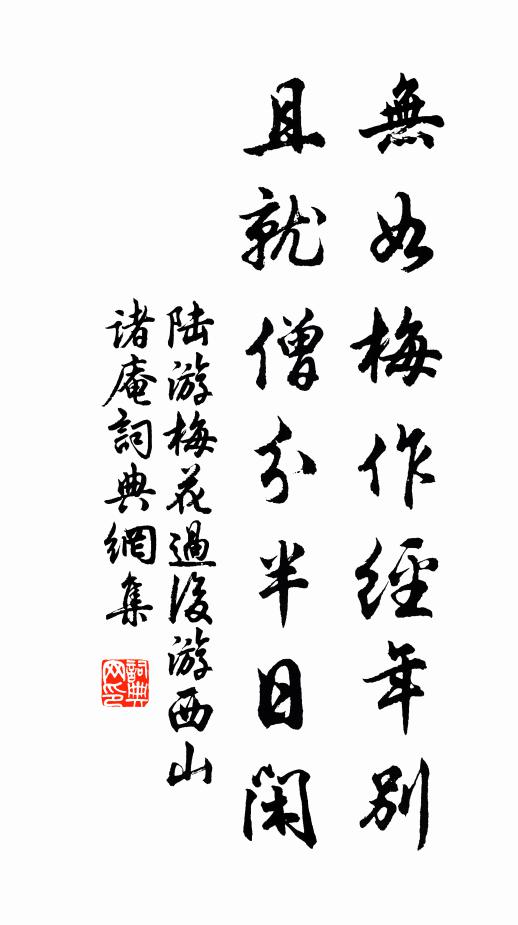 無如梅作經年別
且就僧分半日閑
陸游梅花過後游西山
諸庵詞典網集
詞典網印